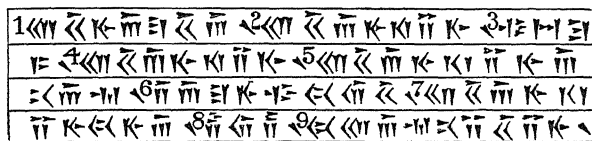 1 𐎧𐏁𐎹𐎠𐎼𐏁𐎠 𐏐2 𐎧𐏁𐎠𐎹𐎰𐎡𐎹 𐏐3 𐎺𐏀𐎼
𐎣 𐏐4 𐎧𐏁𐎠𐎹𐎰𐎡𐎹 𐏐5 𐎧𐏁𐎠𐎹𐎰𐎡𐎹𐎠
𐎴𐎠𐎶 𐏐6 𐎭𐎠𐎼𐎹𐎺𐏃𐎢𐏁 𐏐7 𐎧𐏁𐎠𐎹𐎰
𐎡𐎹𐏃𐎹𐎠 𐏐8 𐎱𐎢𐏂 𐏐9 𐏃𐎧𐎠𐎶𐎴𐎡𐏁𐎡𐎹 𐏐